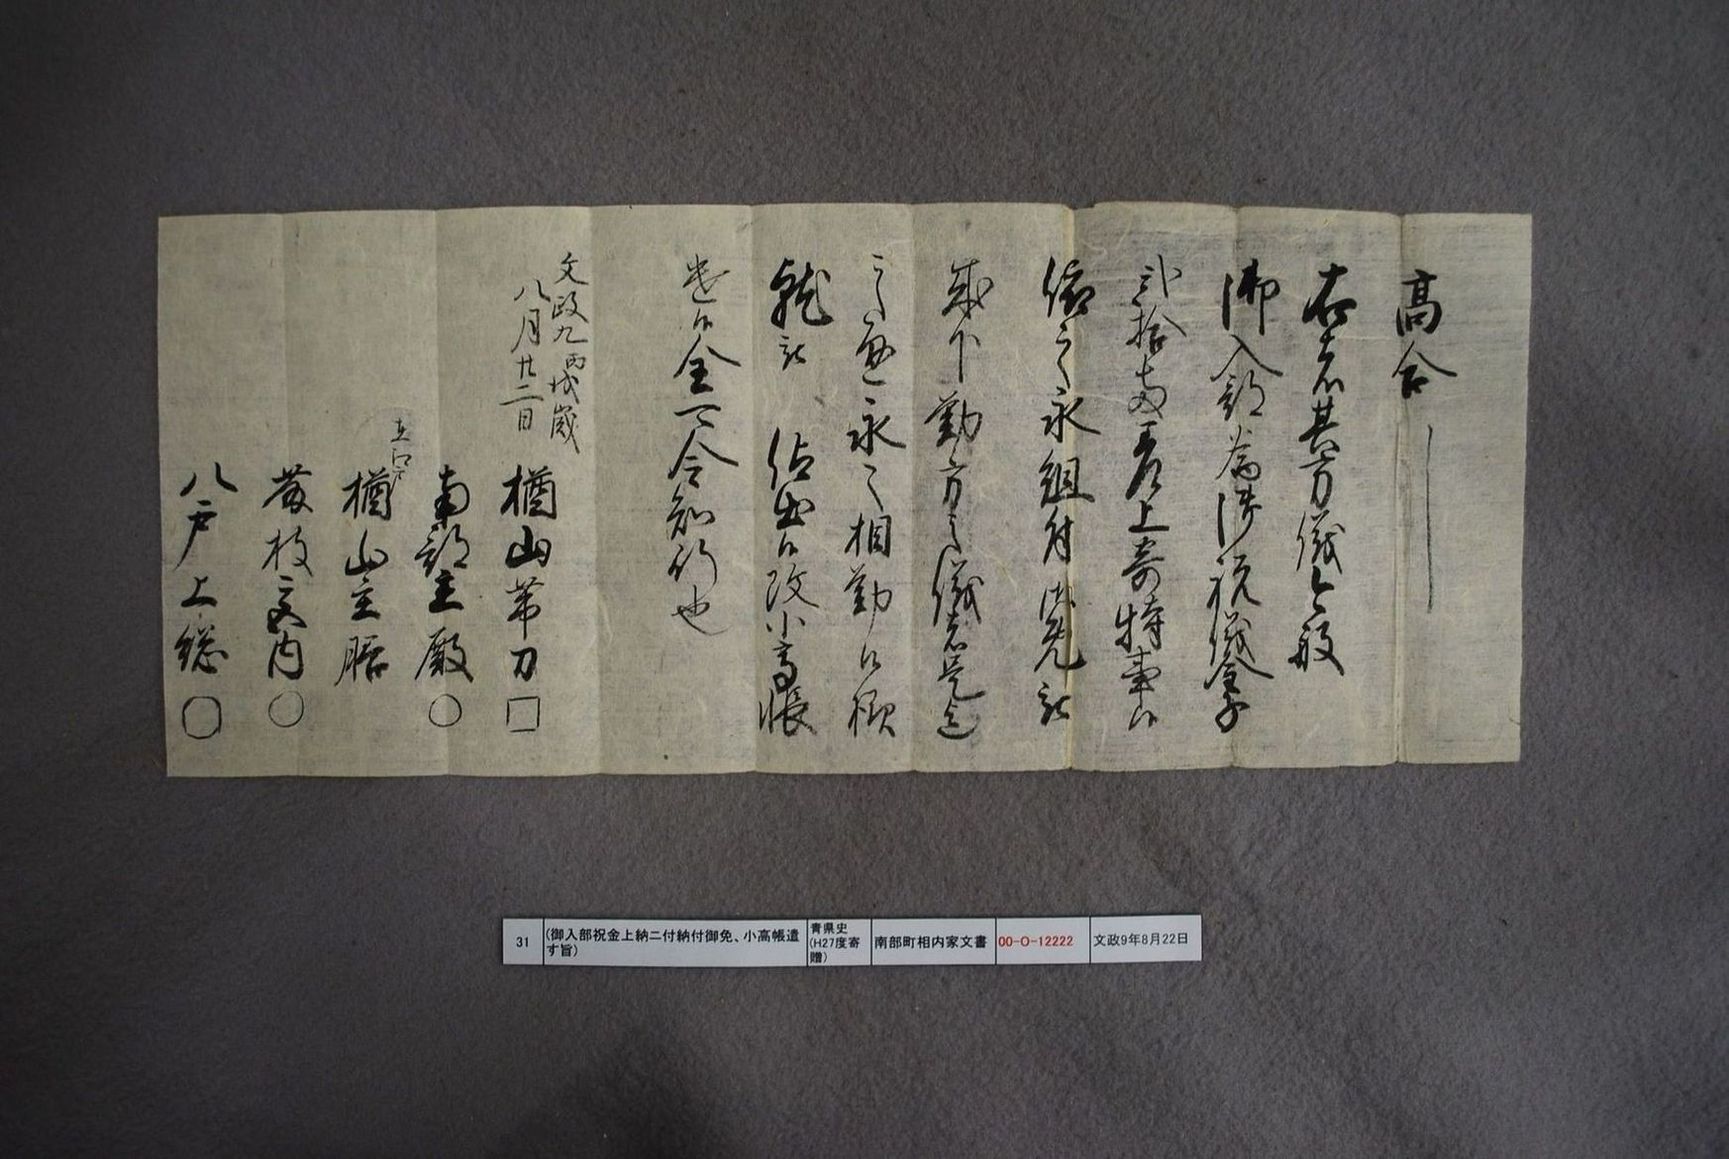 高合
右者其方儀今般
御入部為御祝儀金子
弐拾両差上奇特事候
依之永組付御免被
成下勤方之儀者是迄
之通永く相勤候様
就被 仰出候改小高帳
遣候全可令知行也
文政九丙戌歳
八月廿二日
楢山帯刀
南部主殿
在江戸
楢山主膳
藤枝宮内
八戸上総
31
(御入部祝金上納ニ付納付御免、小高帳遣す旨)
青県史(H27度寄贈)
南部町相内家文書
00-O-12222
文政9年8月22日